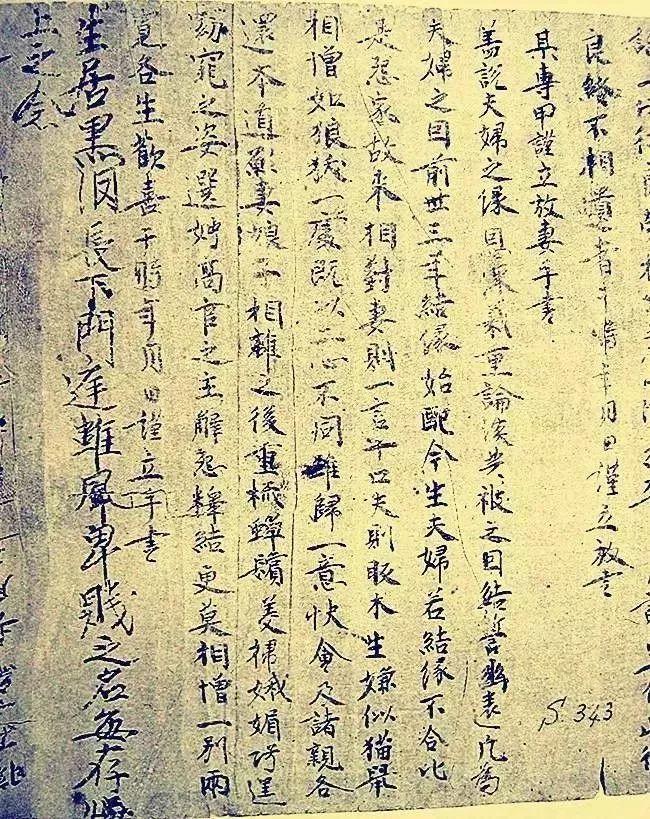 良終不相遺者于時年月日謹立放書
某專甲謹立放妻手書
蓋說夫婦之緣恩深義重論談共被之因結誓幽遠凡為
夫婦之因前世三年結緣始配今生夫婦若結緣不合比
是怨家故來相對妻則一言十口夫則眅木生嫌似猫鼠
相憎如狼犺一處既以二心不同難歸一意快會及諸親各
還本道願妻娘子相離之後重梳蟬鬢美掃娥媚巧逞
窈窕之姿選娉高官之主解怨釋結更莫相憎一別兩
寬各生歡喜于時年月日謹立手書
生居黑長下門庭雖卑賤之名每存
上之念
S.343